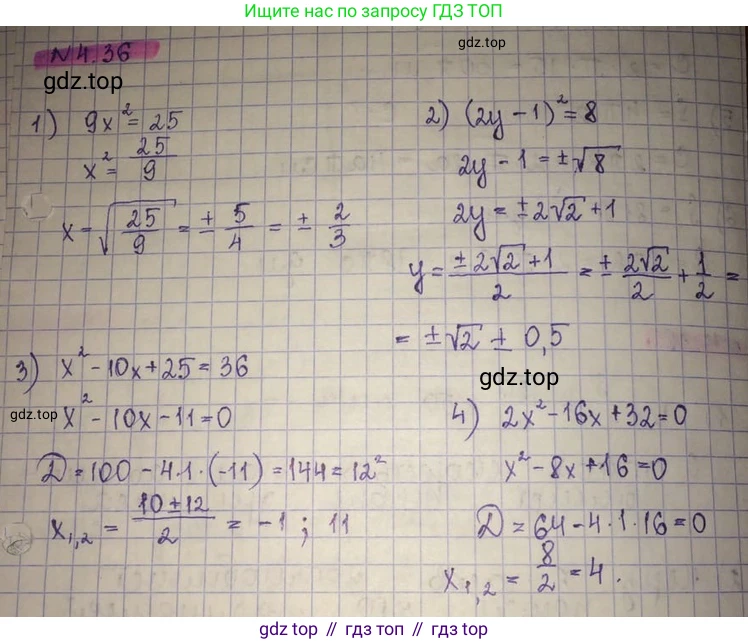 Ищите нас по запросу ГДЗ ТОП
N 4.36
gdz.top
gdz.top
1) 9x² = 25
x² = 25/9
x = √(25/9) = ± 5/4 = ± 2/3
2) (2y - 1)² = 8
2y - 1 = ±√8
2y = ±2√2 + 1
y = (±2√2 + 1)/2 = ± 2√2/2 + 1/2 =
= ±√2 ± 0,5
gdz.top
3) x² - 10x + 25 = 36
gdz.top
x² - 10x - 11 = 0
D = 100 - 4·1·(-11) = 144 = 12²
x₁,₂ = (10 ± 12)/2 = -1 ; 11
4) 2x² - 16x + 32 = 0
x² - 8x + 16 = 0
D = 64 - 4·1·16 = 0
x₁,₂ = 8/2 = 4.
gdz.top // гдз.топ // gdz.top